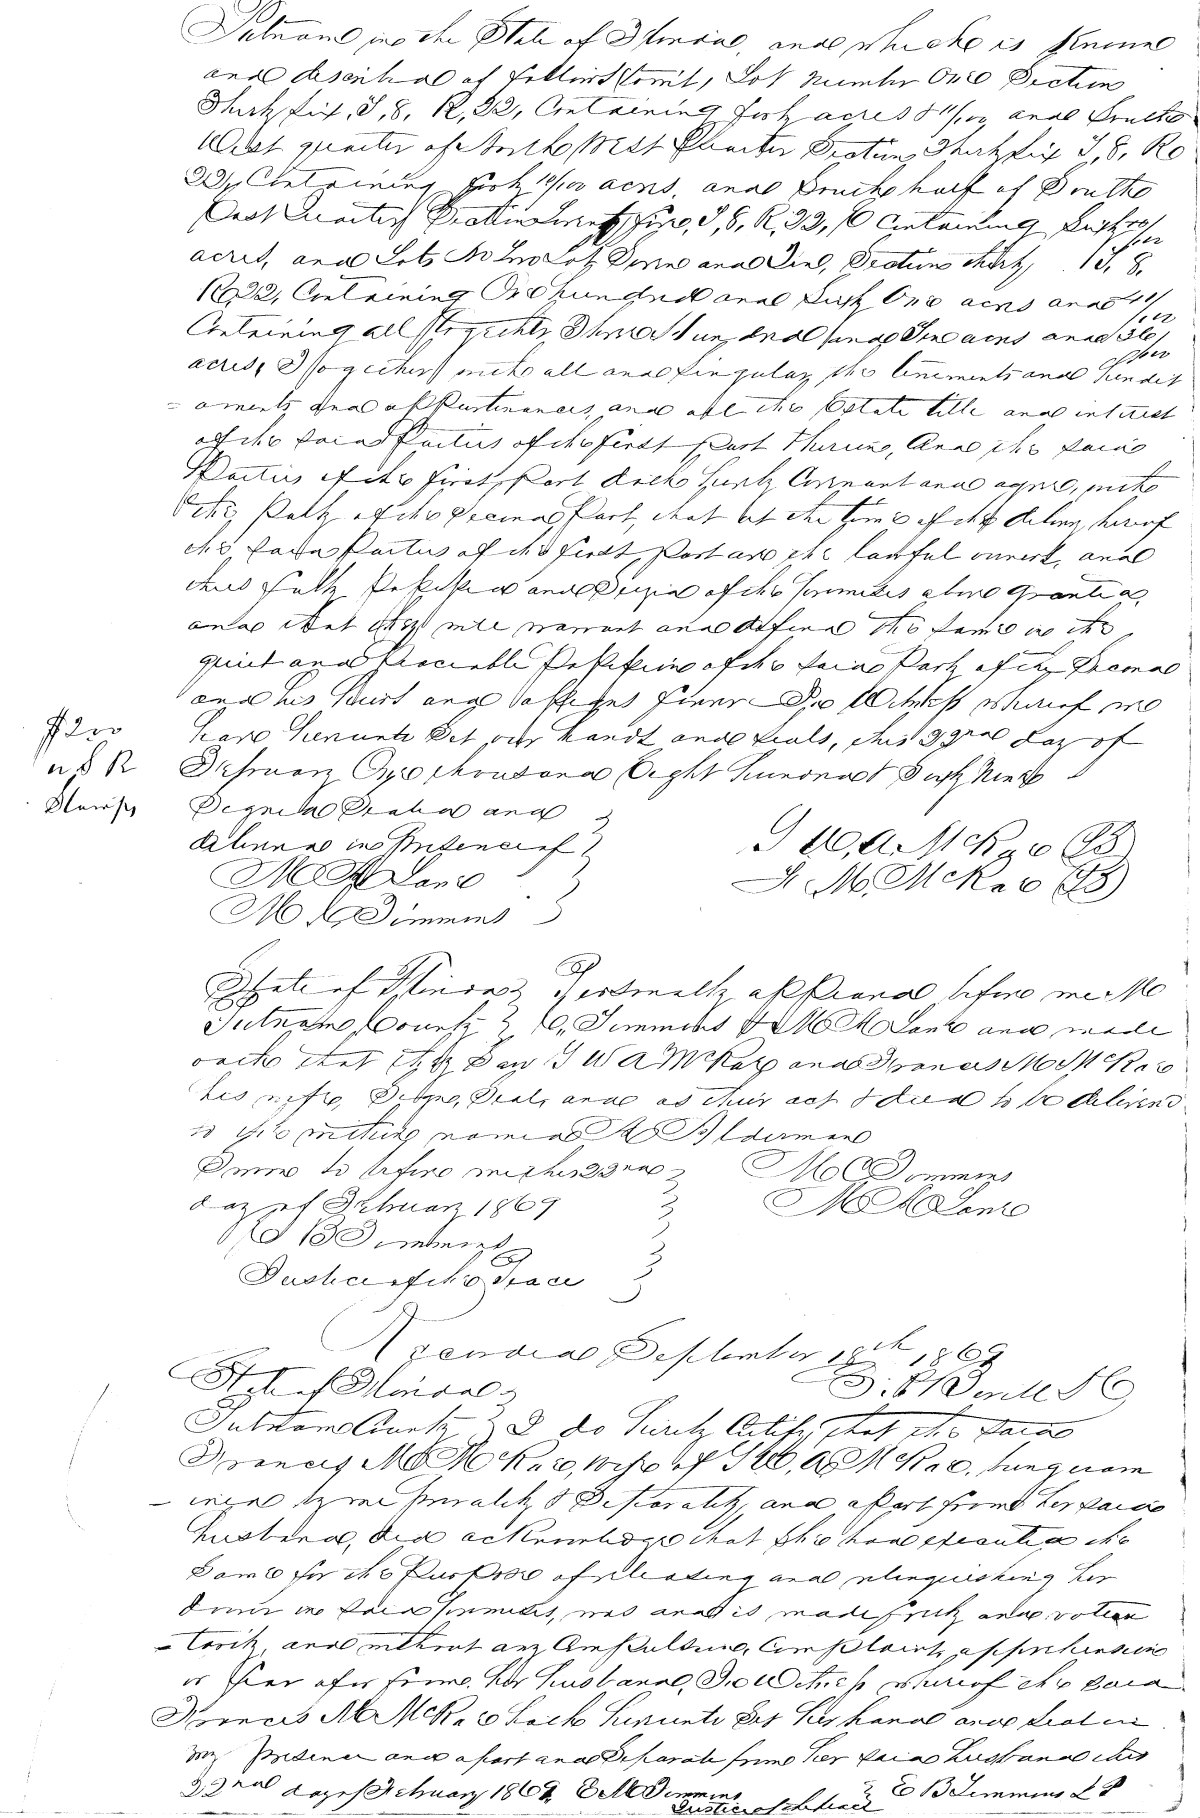 Putnam in the State of Florida, and which is Known
and described as follows to wit, Lot Number One Section
Thirty Six, T, 8, R, 22, Containing forty acres & 11/100 and South
West quarter of North West Quarter Section Thirty Six T, 8, R
22, Containing forty 10/100 acres, and South half of South
East Quarter Section Twenty five, T, 8, R, 22, Containing Eighty
acres, and Lots No Two Seven and Section thirty T, 8,
R 22, Containing One hundred and Sixty One acres and
Containing all together Three Hundred and acres and 36/100
acres, Together with all and Singular, the tenements and heredit
- aments and appurtenances, and all the Estate title and interest
of the Said Parties of the first part therein, And the Said
Parties of the first Part doth hereby Covenant and agree, with
the Party of the Second Part, that at the time of the delivery hereof
the Said Parties of the first part are the lawful owners, and
thus fully Possessed and Seized of the Premises above Granted,
and that they will warrant and defend the Same in the
quiet and Peaceable Possession of the Said Party of the Second
and his heirs and assigns forever In Witness whereof we
have hereunto Set our hands and Seals, this 22nd day of
February One thousand Eight hundred & Sixty Nine
$2.00
U S R
Stamps
Signed Sealed and
delivered in Presence of
M M Lane
M C Timmins
J W. A. McRae (LS)
F. M. McRae (LS)
State of Florida } Personally appeared before me M
Putnam County } C, Timmins & M M Lane and made
oath that they Saw J W A McRae and Frances M McRae
his wife, Sign, Seal, and as their act & deed to be delivered
to the within named Alderman
Sworn to before me this 22nd } M C Timmins
day of February 1869 } M M Lane
E B Timmins
Justice of the Peace
Recorded September 18th 1869
State of Florida }
Putnam County } I do hereby Certify, that the Said
Frances M McRae, wife of J W. A McRae, being exam
- ined by me Privately & Separately, and apart from her Said
husband, did acknowledge that She had executed the
Same for the Purpose of releasing and relinquishing her
dower in Said Premises, was and is made freely and volun
- tarily, and without any Compulsion, Complaint, apprehension
or fear of or from her husband, In Witness whereof the Said
Frances M McRae hath hereunto Set her hand and Seal in
my Presence and apart and Separate from her Said husband this
22nd day of February 1869 E B Timmins
Justice of the Peace